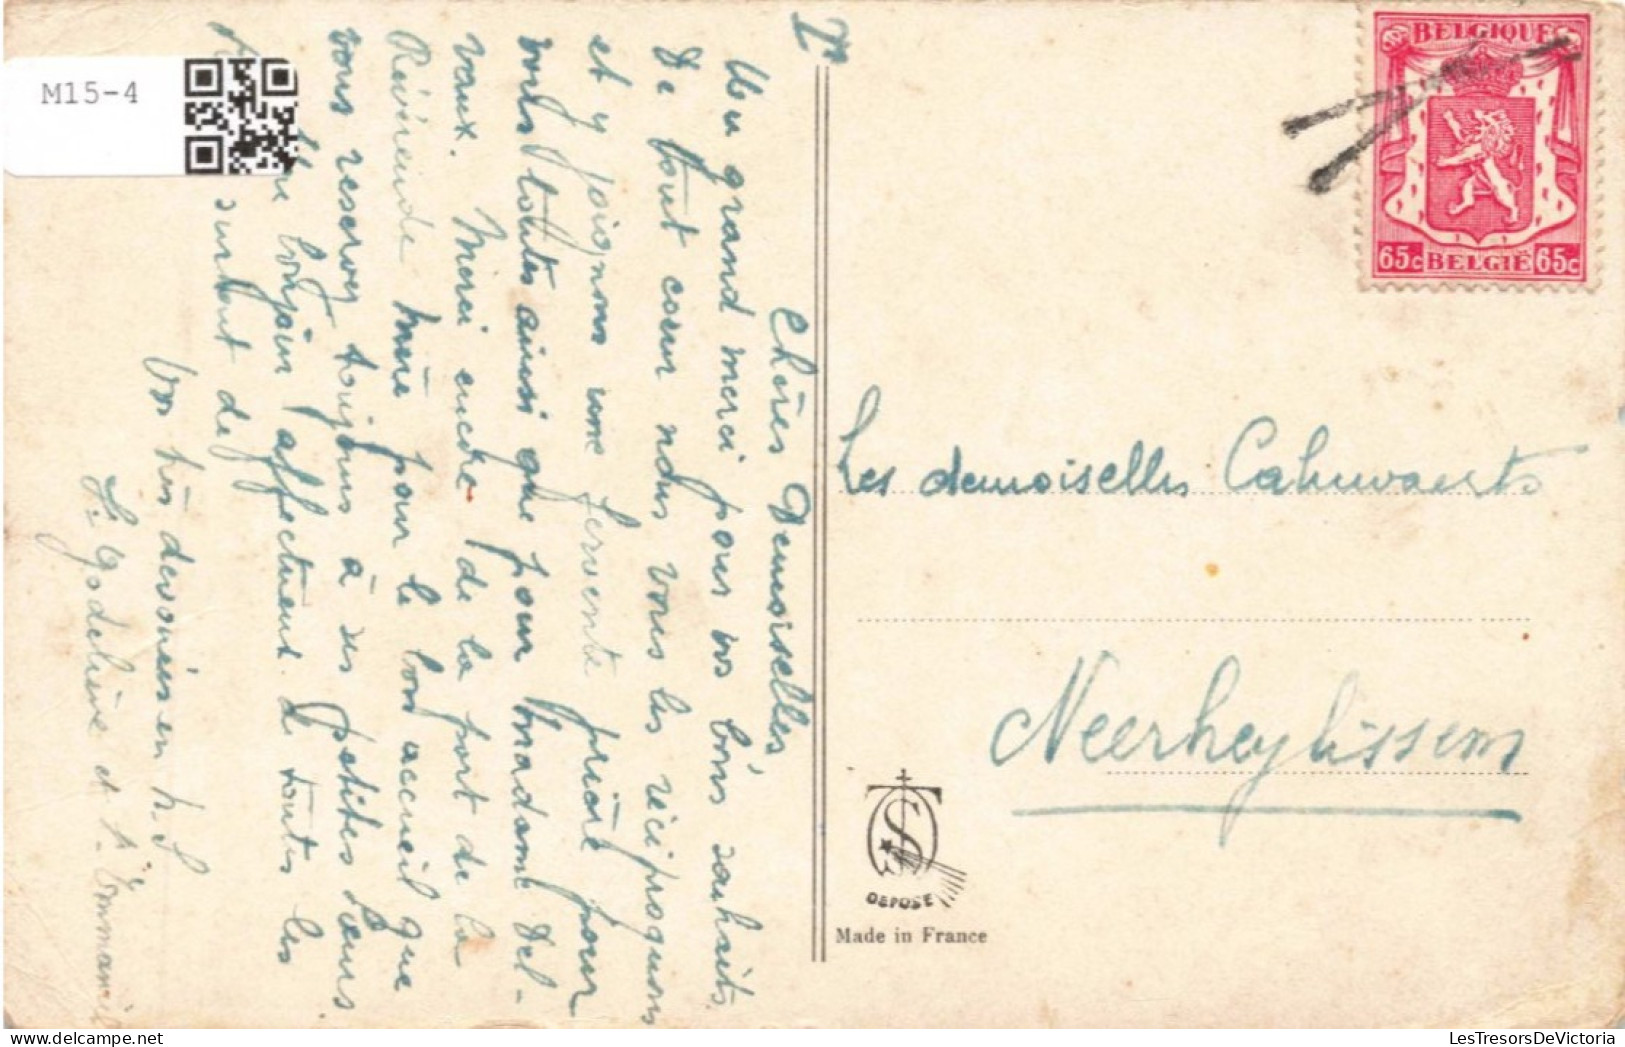 M15-4
BELGIQUE
65c BELGIË 65c
Chères Demoiselles,
Un grand merci pour vos bons souhaits
De tout cœur nous vous les réciproquons
et y joignons une fervente prière pour
vous toutes ainsi que pour Madame Del-
vaux. Merci encore de la part de la
Révérende Mère pour le bon accueil que
vous réservez toujours à ses petites sœurs.
bonjour affectueux de toutes les
surtout de
Vos très dévouées en N.S
Sr Godelive et Sr Emmanuel
Les demoiselles Cahuwaerts
Neerheylissem
DEPOSE
Made in France
LesTresorsDeVictoria